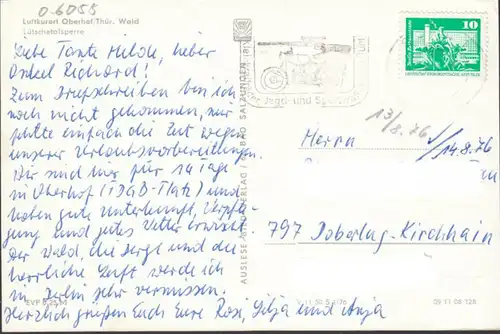 0 6055
Luftkurort Oberhof/Thür. Wald
Lütschetalsperre
Liebe Tante Hilde, lieber
Onkel Richard!
Zum Briefschreiben bin ich
noch nicht gekommen, mir
fehlte einfach die Zeit wegen
unserer Urlaubsvorbereitungen.
Wir sind hier für 14 Tage
in Oberhof (FDGB-Platz) und
haben gute Unterkunft, Verpfle-
gung und gutes Wetter erwischt.
Der Wald, die Berge und die
herrliche Luft werde ich
in Berlin sehr vermissen.
Herzlich grüßen Euch Eure Rosi, Silja und Anja
EVP 0,25 M
AUSLESE-BILD-VERLAG / BAD SALZUNGEN
V 11 50 5 1/76
09 11 08 128
Jagd- und Sport
10
13/8.76
14.8.76
Herrn
797 Doberlug-Kirchhain